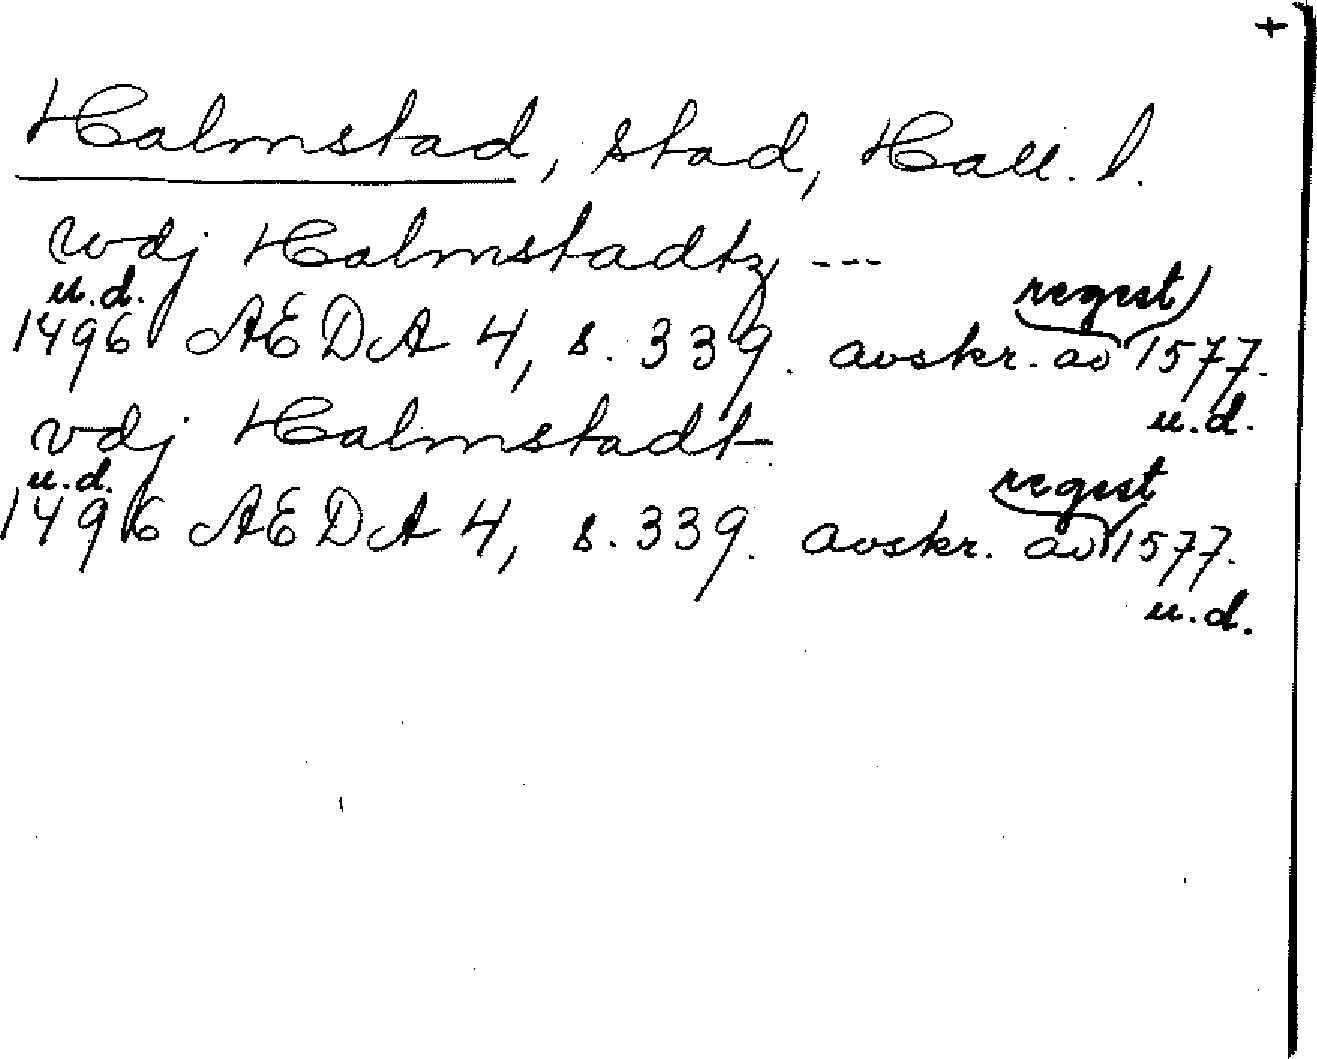 +
Halmstad, stad, Hall. l.
wdj Halmstadtz ---
u.d. regest
1496 AEDA 4, s. 339. avskr. av 1577.
u.d.
vdj Halmstadt
u.d. regest
1496 AEDA 4, s. 339. avskr. av 1577.
u.d.